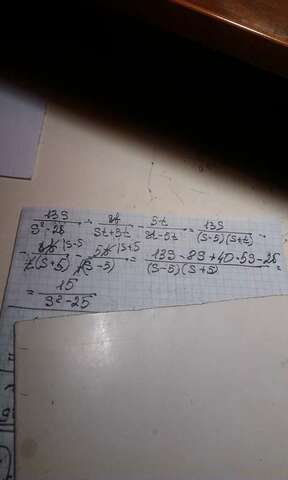 13s/(s² - 25) - 8t/(st+5t) - 5t/(st-5t) = 13s/((s-5)(s+5)) -
- 8t |s-5/(t(s+5)) - 5t |s+5/(t(s-5)) = (13s - 8s + 40 - 5s - 25)/((s-5)(s+5)) =
= 15/(s² - 25)